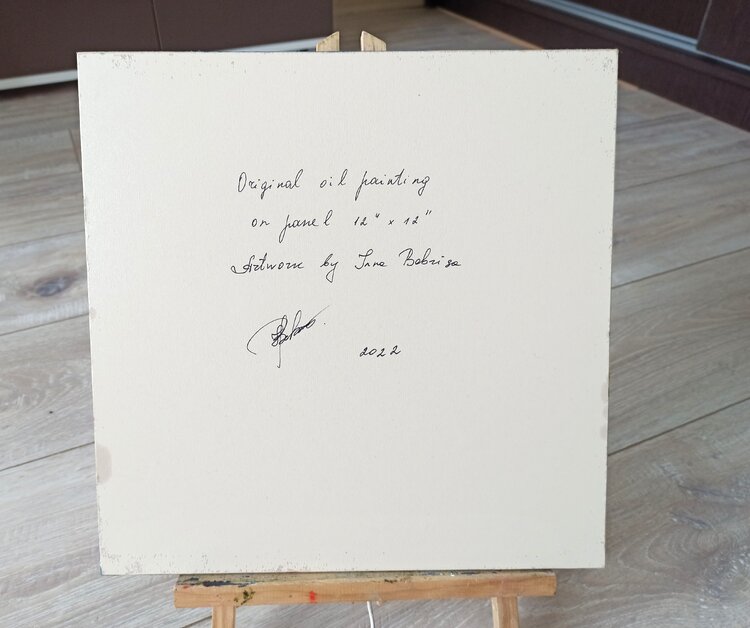 Original oil painting
on panel 12" x 12"
Artwork by Inna Bebrisa
2022